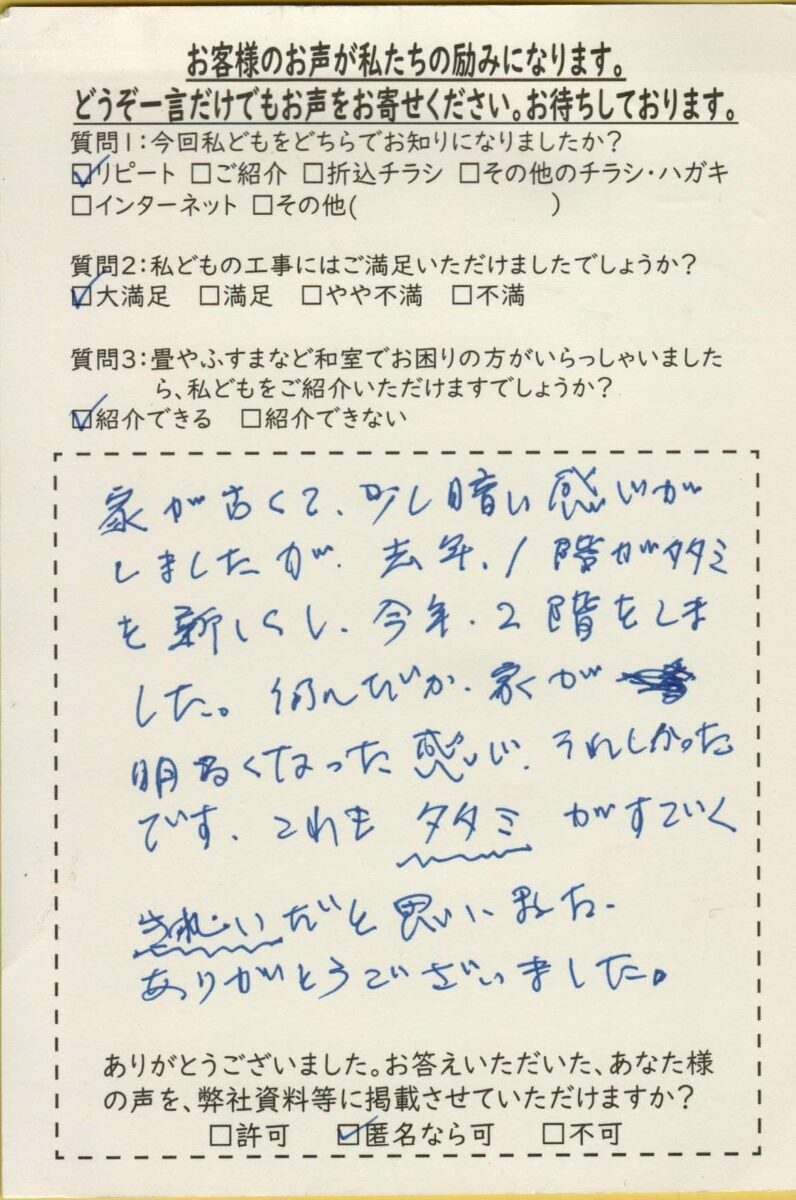 お客様のお声が私たちの励みになります。
どうぞ一言だけでもお声をお寄せください。お待ちしております。
質問1:今回私どもをどちらでお知りになりましたか?
☑リピート □ご紹介 □折込チラシ □その他のチラシ・ハガキ
□インターネット □その他( )
質問2:私どもの工事にはご満足いただけましたでしょうか?
☑大満足 □満足 □やや不満 □不満
質問3:畳やふすまなど和室でお困りの方がいらっしゃいました
ら、私どもをご紹介いただけますでしょうか?
☑紹介できる □紹介できない
家が古くて、少し暗い感じが
しましたが、去年、1階がタタミ
を新しくし、今年、2階をしま
した。何んだか、家が
明るくなった感じ、うれしかった
です、これも タタミ がすごく
きれいだと思いました。
ありがとうございました。
ありがとうございました。お答えいただいた、あなた様
の声を、弊社資料等に掲載させていただけますか?
□許可 ☑匿名なら可 □不可